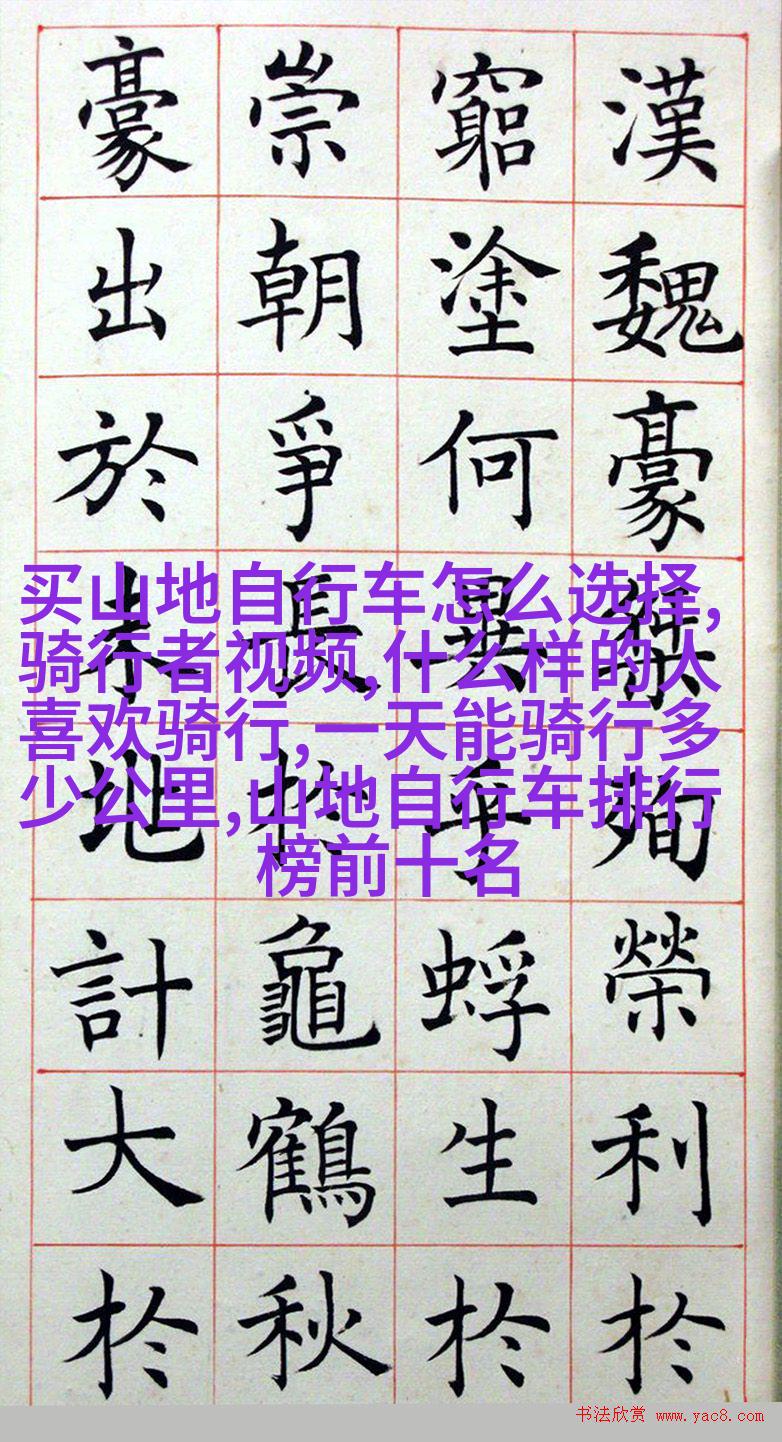 漢魏豪傑殉榮利於
窮塗何異乎蜉生於
崇朝爭長於龜鶴秋
豪出於地計大於
买山地自行车怎么选择,
骑行者视频,什么样的人
喜欢骑行,一天能骑行多
少公里,山地自行车排行
榜前十名
书法欣赏 www.yac8.com